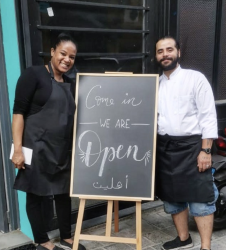 Come in
WE ARE
Open